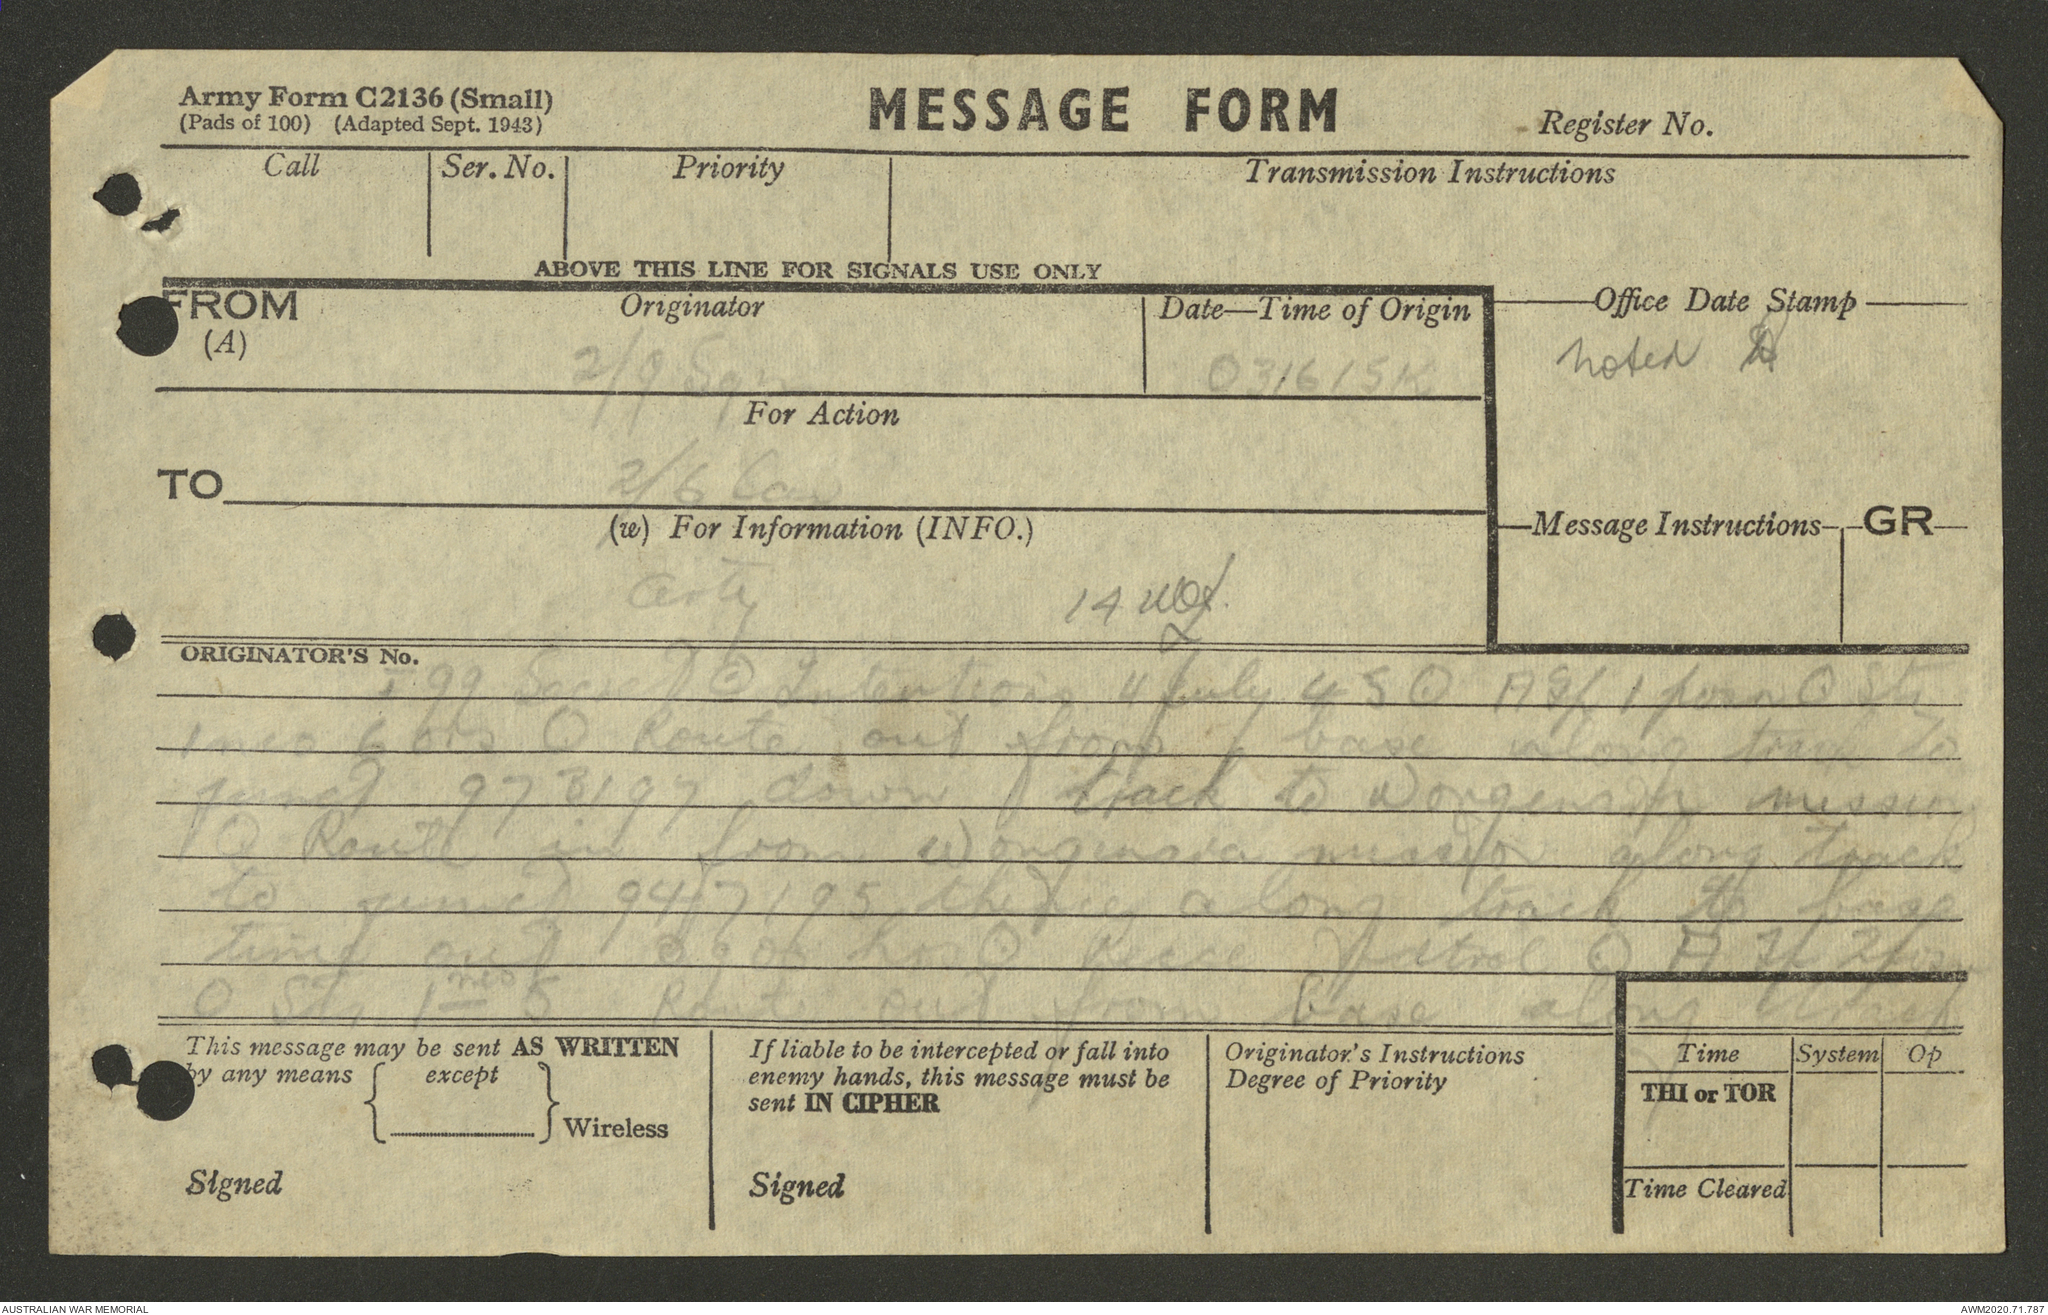 Army Form C2136 (Small)
(Pads of 100) (Adapted Sept. 1943)
MESSAGE FORM
Register No.
Call Ser. No. Priority Transmission Instructions
ABOVE THIS LINE FOR SIGNALS USE ONLY
FROM Originator Date—Time of Origin Office Date Stamp
(A)
2/9 Sqn 031615K noted
For Action
TO 2/6 Cav
(W) For Information (INFO.) Message Instructions GR
Arty 14
ORIGINATOR'S No.
I 99 Secret Intentions 4 July
6 ors Route out from base along track to
junct 973197 down track to mission
Route in from mission along track
to junct 947195 thence along track to base
time out 0900 hrs patrol
1 5 Route out from base along track
This message may be sent AS WRITTEN
by any means except
Wireless
Signed
If liable to be intercepted or fall into
enemy hands, this message must be
sent IN CIPHER
Signed
Originator's Instructions
Degree of Priority
Time System Op
THI or TOR
Time Cleared
AUSTRALIAN WAR MEMORIAL AWM2020.71.787